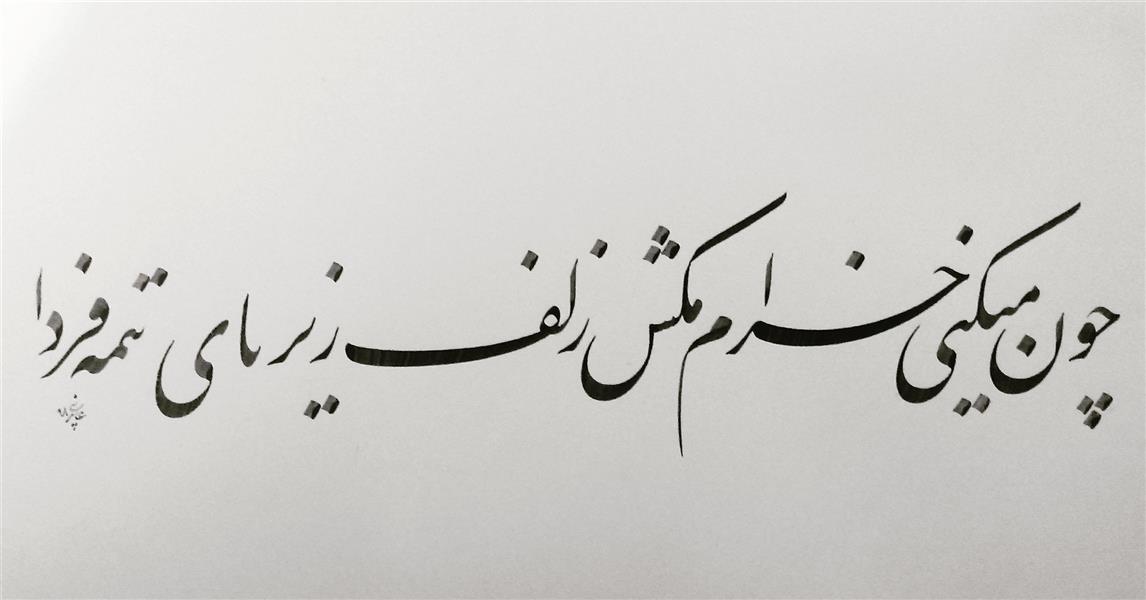 چون میکنی خرام مکش زلف زیر پای تتمه فردا